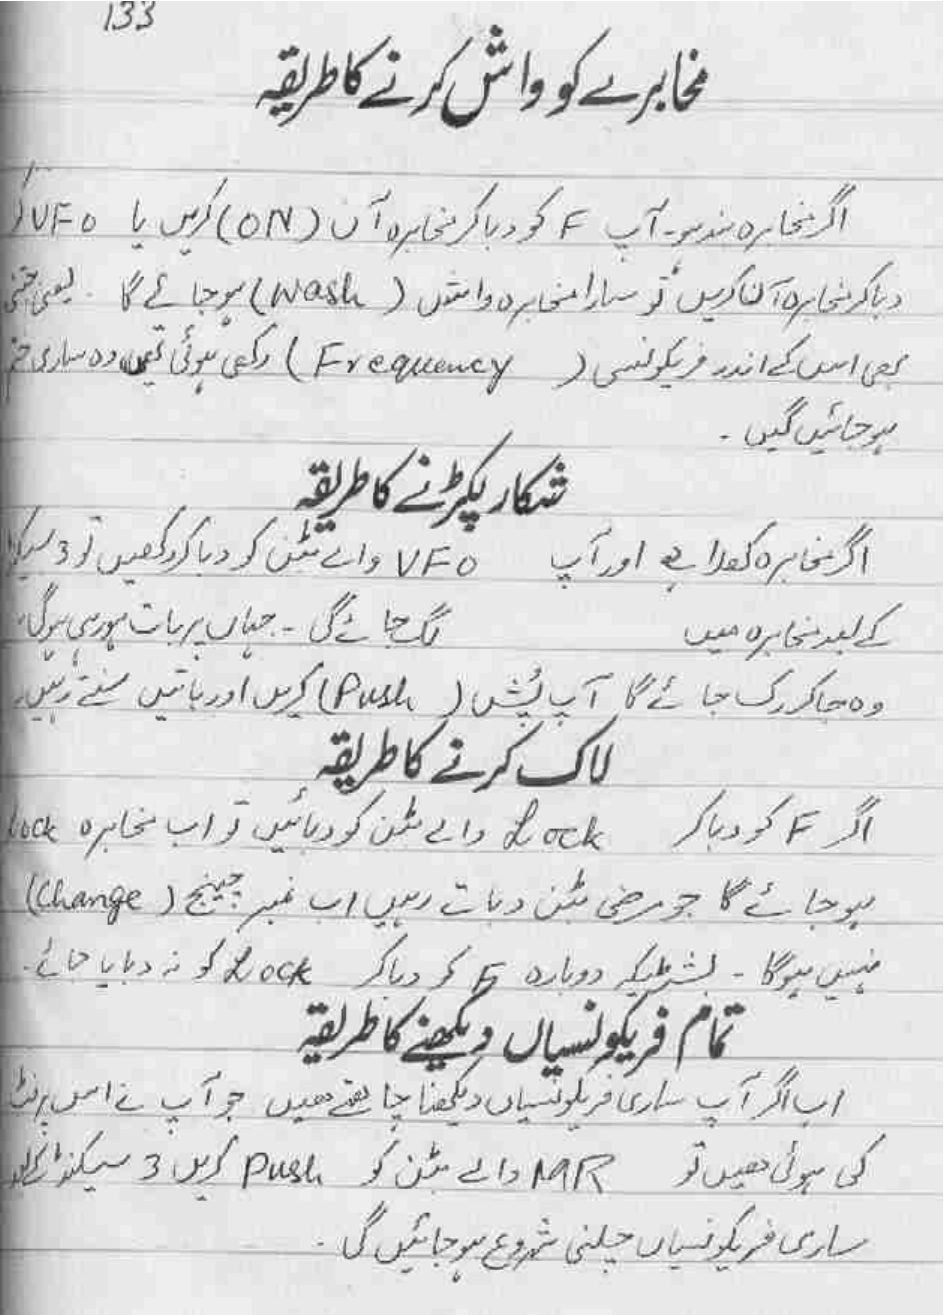 133
مخابرے کو واش کرنے کا طریقہ
اگر مخابرہ بند ہو۔ آپ F کو دبا کر مخابرہ آن (ON) کریں یا VFO کو
دبا کر مخابرہ آن کریں تو سارا مخابرہ واش (Wash) ہو جائے گا ۔ یعنی جتنی
بھی اس کے اندر فریکونسی (Frequency) رکھی ہوئی تھیں وہ ساری ختم
ہو جائیں گیں ۔
شکار پکڑنے کا طریقہ
اگر مخابرہ کھلا ہے اور آپ VFO والے بٹن کو دبا کر رکھیں تو 3 سیکنڈ
کے بعد مخابرہ میں لگ جائے گی ۔ جہاں پر بات ہو رہی ہوگی،
وہ جا کر رک جائے گا آپ پُش (Push) کریں اور باتیں سنتے رہیں۔
لاک کرنے کا طریقہ
اگر F کو دبا کر Lock والے بٹن کو دبائیں تو اب مخابرہ Lock
ہو جائے گا جو مرضی بٹن دباتے رہیں اب نمبر چینج (Change)
نہیں ہوگا ۔ بشرطیکہ دوبارہ F کو دبا کر Lock کو نہ دبایا جائے۔
تمام فریکونسیاں دیکھنے کا طریقہ
اب اگر آپ ساری فریکونسیاں دیکھنا چاہتے ھیں جو آپ نے اس پر
کی ہوئی ھیں تو MR والے بٹن کو Push کریں 3 سیکنڈ کے بعد
ساری فریکونسیاں چلنی شروع ہو جائیں گی ۔